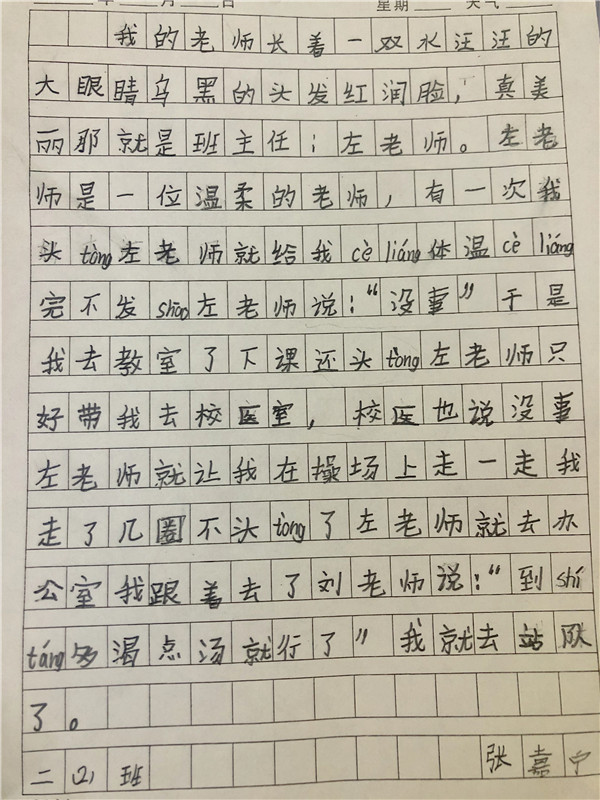 年 月 日 星期 天气
我的老师长着一双水汪汪的
大眼睛乌黑的头发红润脸，真美
丽那就是班主任；左老师。左老
师是一位温柔的老师，有一次我
头tòng左老师就给我cè liáng体温cè liáng
完不发shāo左老师说：“没事”于是
我去教室了下课还头tòng左老师只
好带我去校医室，校医也说没事
左老师就让我在操场上走一走我
走了几圈不头tòng了左老师就去办
公室我跟着去了刘老师说：“到shí
táng多渴点汤就行了”我就去站队
了。
二(2)班 张嘉宁